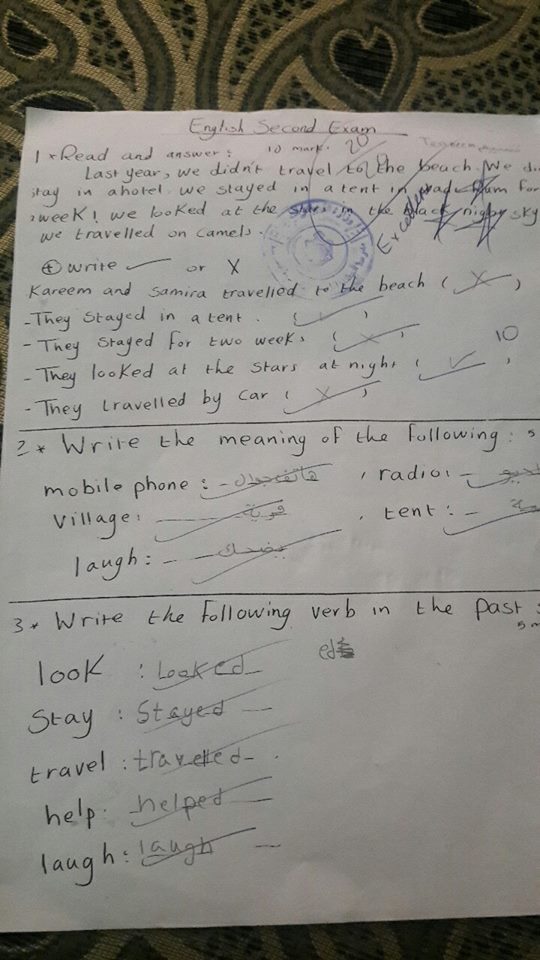 English Second Exam
1* Read and answer: 10 mark. 20
Last year, we didn't travel to the beach. We di
stay in a hotel. we stayed in a tent in for
week! we looked at the stars in the black night sky
we travelled on camels.
Excellent
write ✓ or X
Kareem and Samira travelled to the beach ( X )
- They stayed in a tent. ( ✓ )
- They stayed for two weeks ( X ) 10
- They looked at the stars at night ( ✓ )
- They travelled by car ( X )
2* Write the meaning of the following: 5
mobile phone: - هاتف جوال , radio: -
village: قرية , tent: -
laugh: - يضحك
3* Write the following verb in the past:
5 m
ed
look : Looked
Stay : Stayed
travel : traveled
help: helped
laugh: laugh